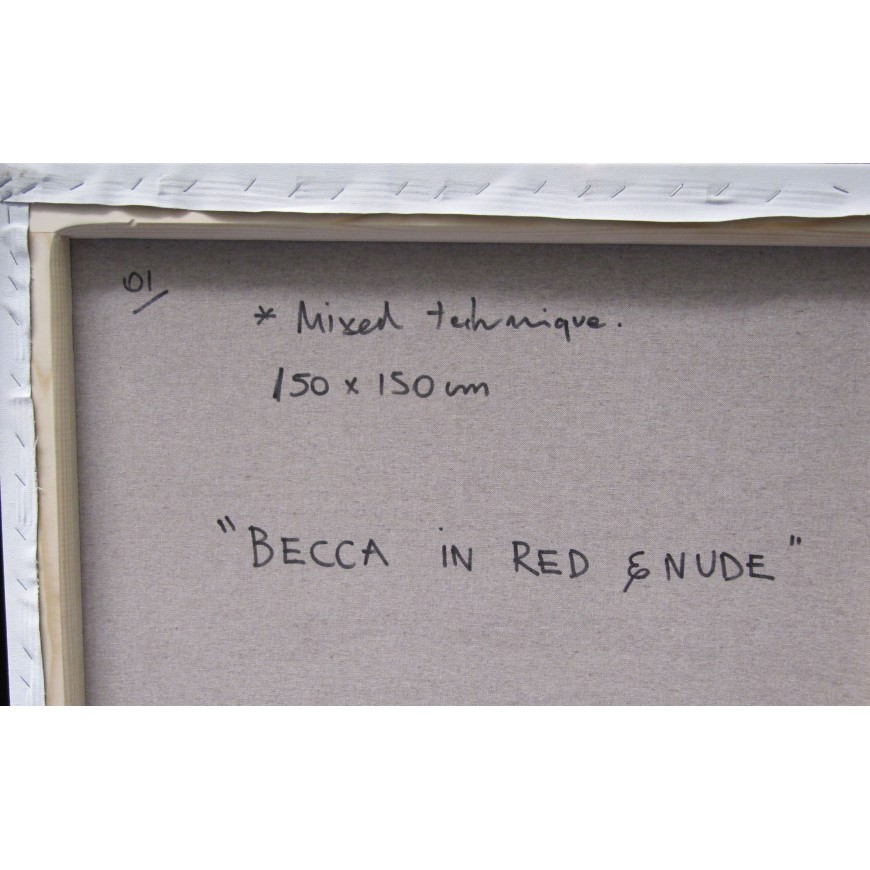 01/
* Mixed technique.
150 x 150 cm
"BECCA IN RED & NUDE"